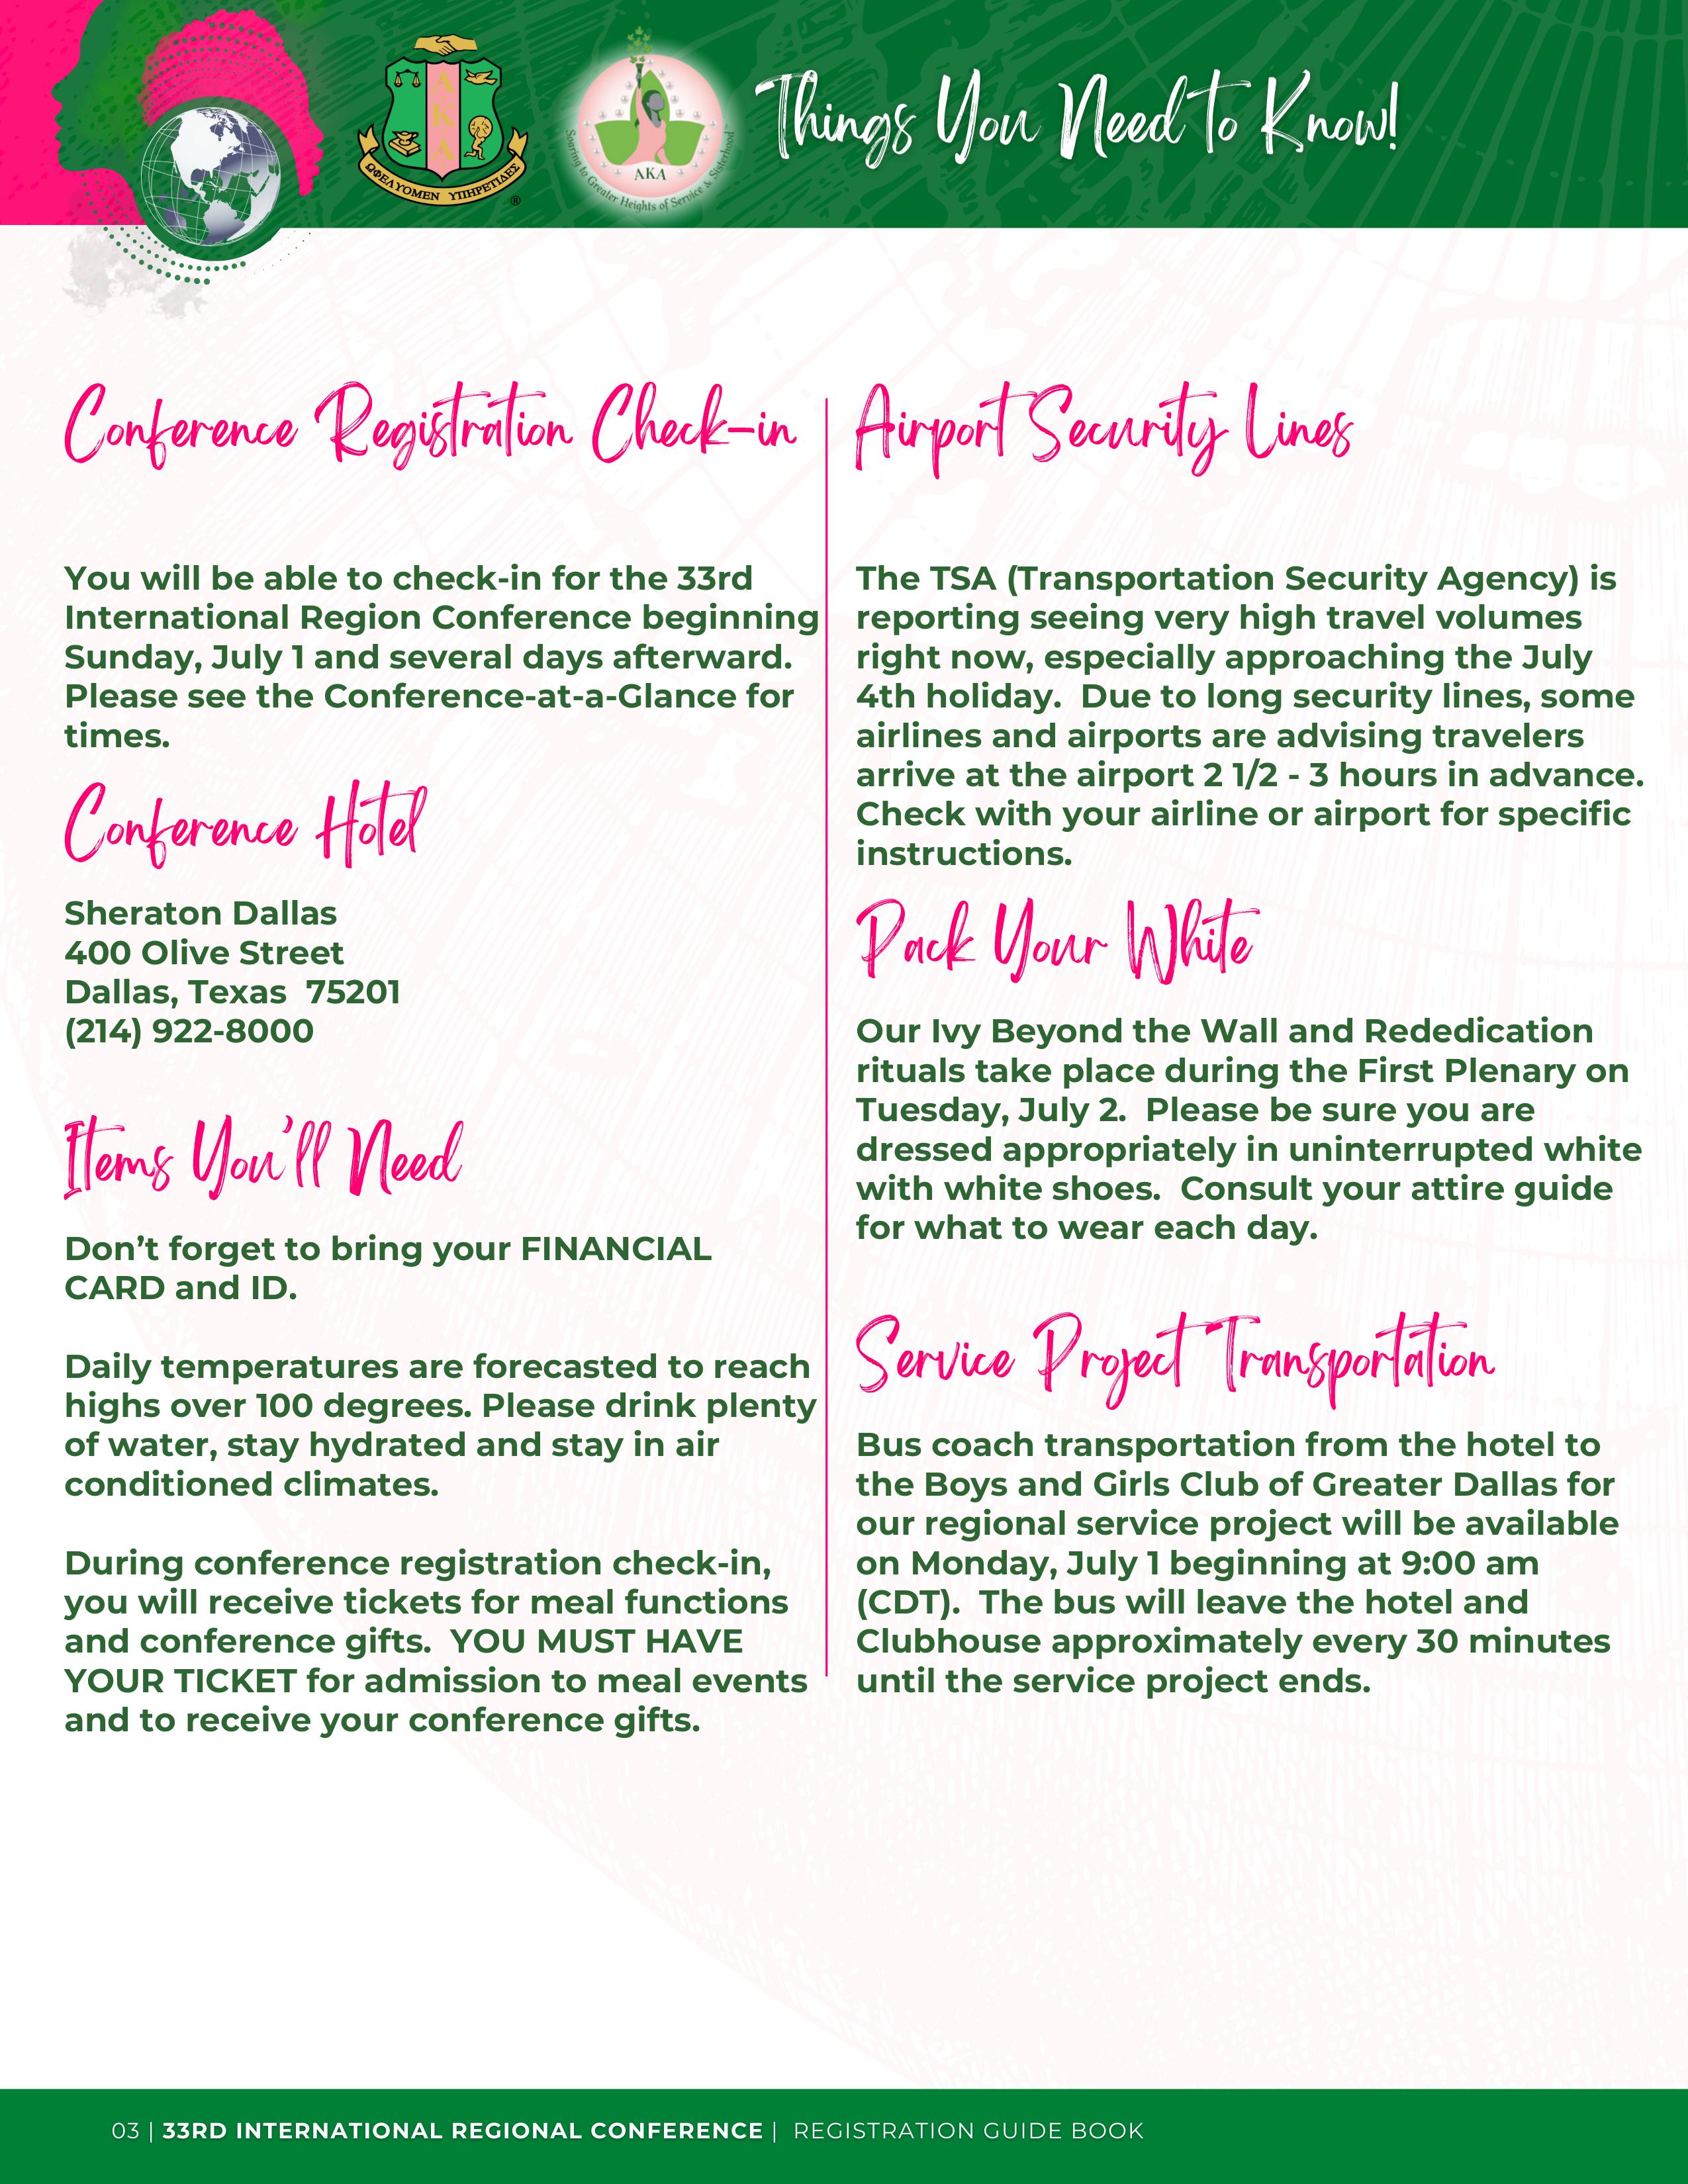 ΑΚΑ
ΩΦΕΛΥΟΜΕΝ ΥΠΗΡΕΤΙΔΕΣ
®
AKA
Soaring to Greater Heights of Service & Sisterhood
Things You Need to Know!
Conference Registration Check-in
You will be able to check-in for the 33rd
International Region Conference beginning
Sunday, July 1 and several days afterward.
Please see the Conference-at-a-Glance for
times.
Conference Hotel
Sheraton Dallas
400 Olive Street
Dallas, Texas 75201
(214) 922-8000
Items You'll Need
Don't forget to bring your FINANCIAL
CARD and ID.
Daily temperatures are forecasted to reach
highs over 100 degrees. Please drink plenty
of water, stay hydrated and stay in air
conditioned climates.
During conference registration check-in,
you will receive tickets for meal functions
and conference gifts. YOU MUST HAVE
YOUR TICKET for admission to meal events
and to receive your conference gifts.
Airport Security Lines
The TSA (Transportation Security Agency) is
reporting seeing very high travel volumes
right now, especially approaching the July
4th holiday. Due to long security lines, some
airlines and airports are advising travelers
arrive at the airport 2 1/2 - 3 hours in advance.
Check with your airline or airport for specific
instructions.
Pack Your White
Our Ivy Beyond the Wall and Rededication
rituals take place during the First Plenary on
Tuesday, July 2. Please be sure you are
dressed appropriately in uninterrupted white
with white shoes. Consult your attire guide
for what to wear each day.
Service Project Transportation
Bus coach transportation from the hotel to
the Boys and Girls Club of Greater Dallas for
our regional service project will be available
on Monday, July 1 beginning at 9:00 am
(CDT). The bus will leave the hotel and
Clubhouse approximately every 30 minutes
until the service project ends.
03 | 33RD INTERNATIONAL REGIONAL CONFERENCE | REGISTRATION GUIDE BOOK